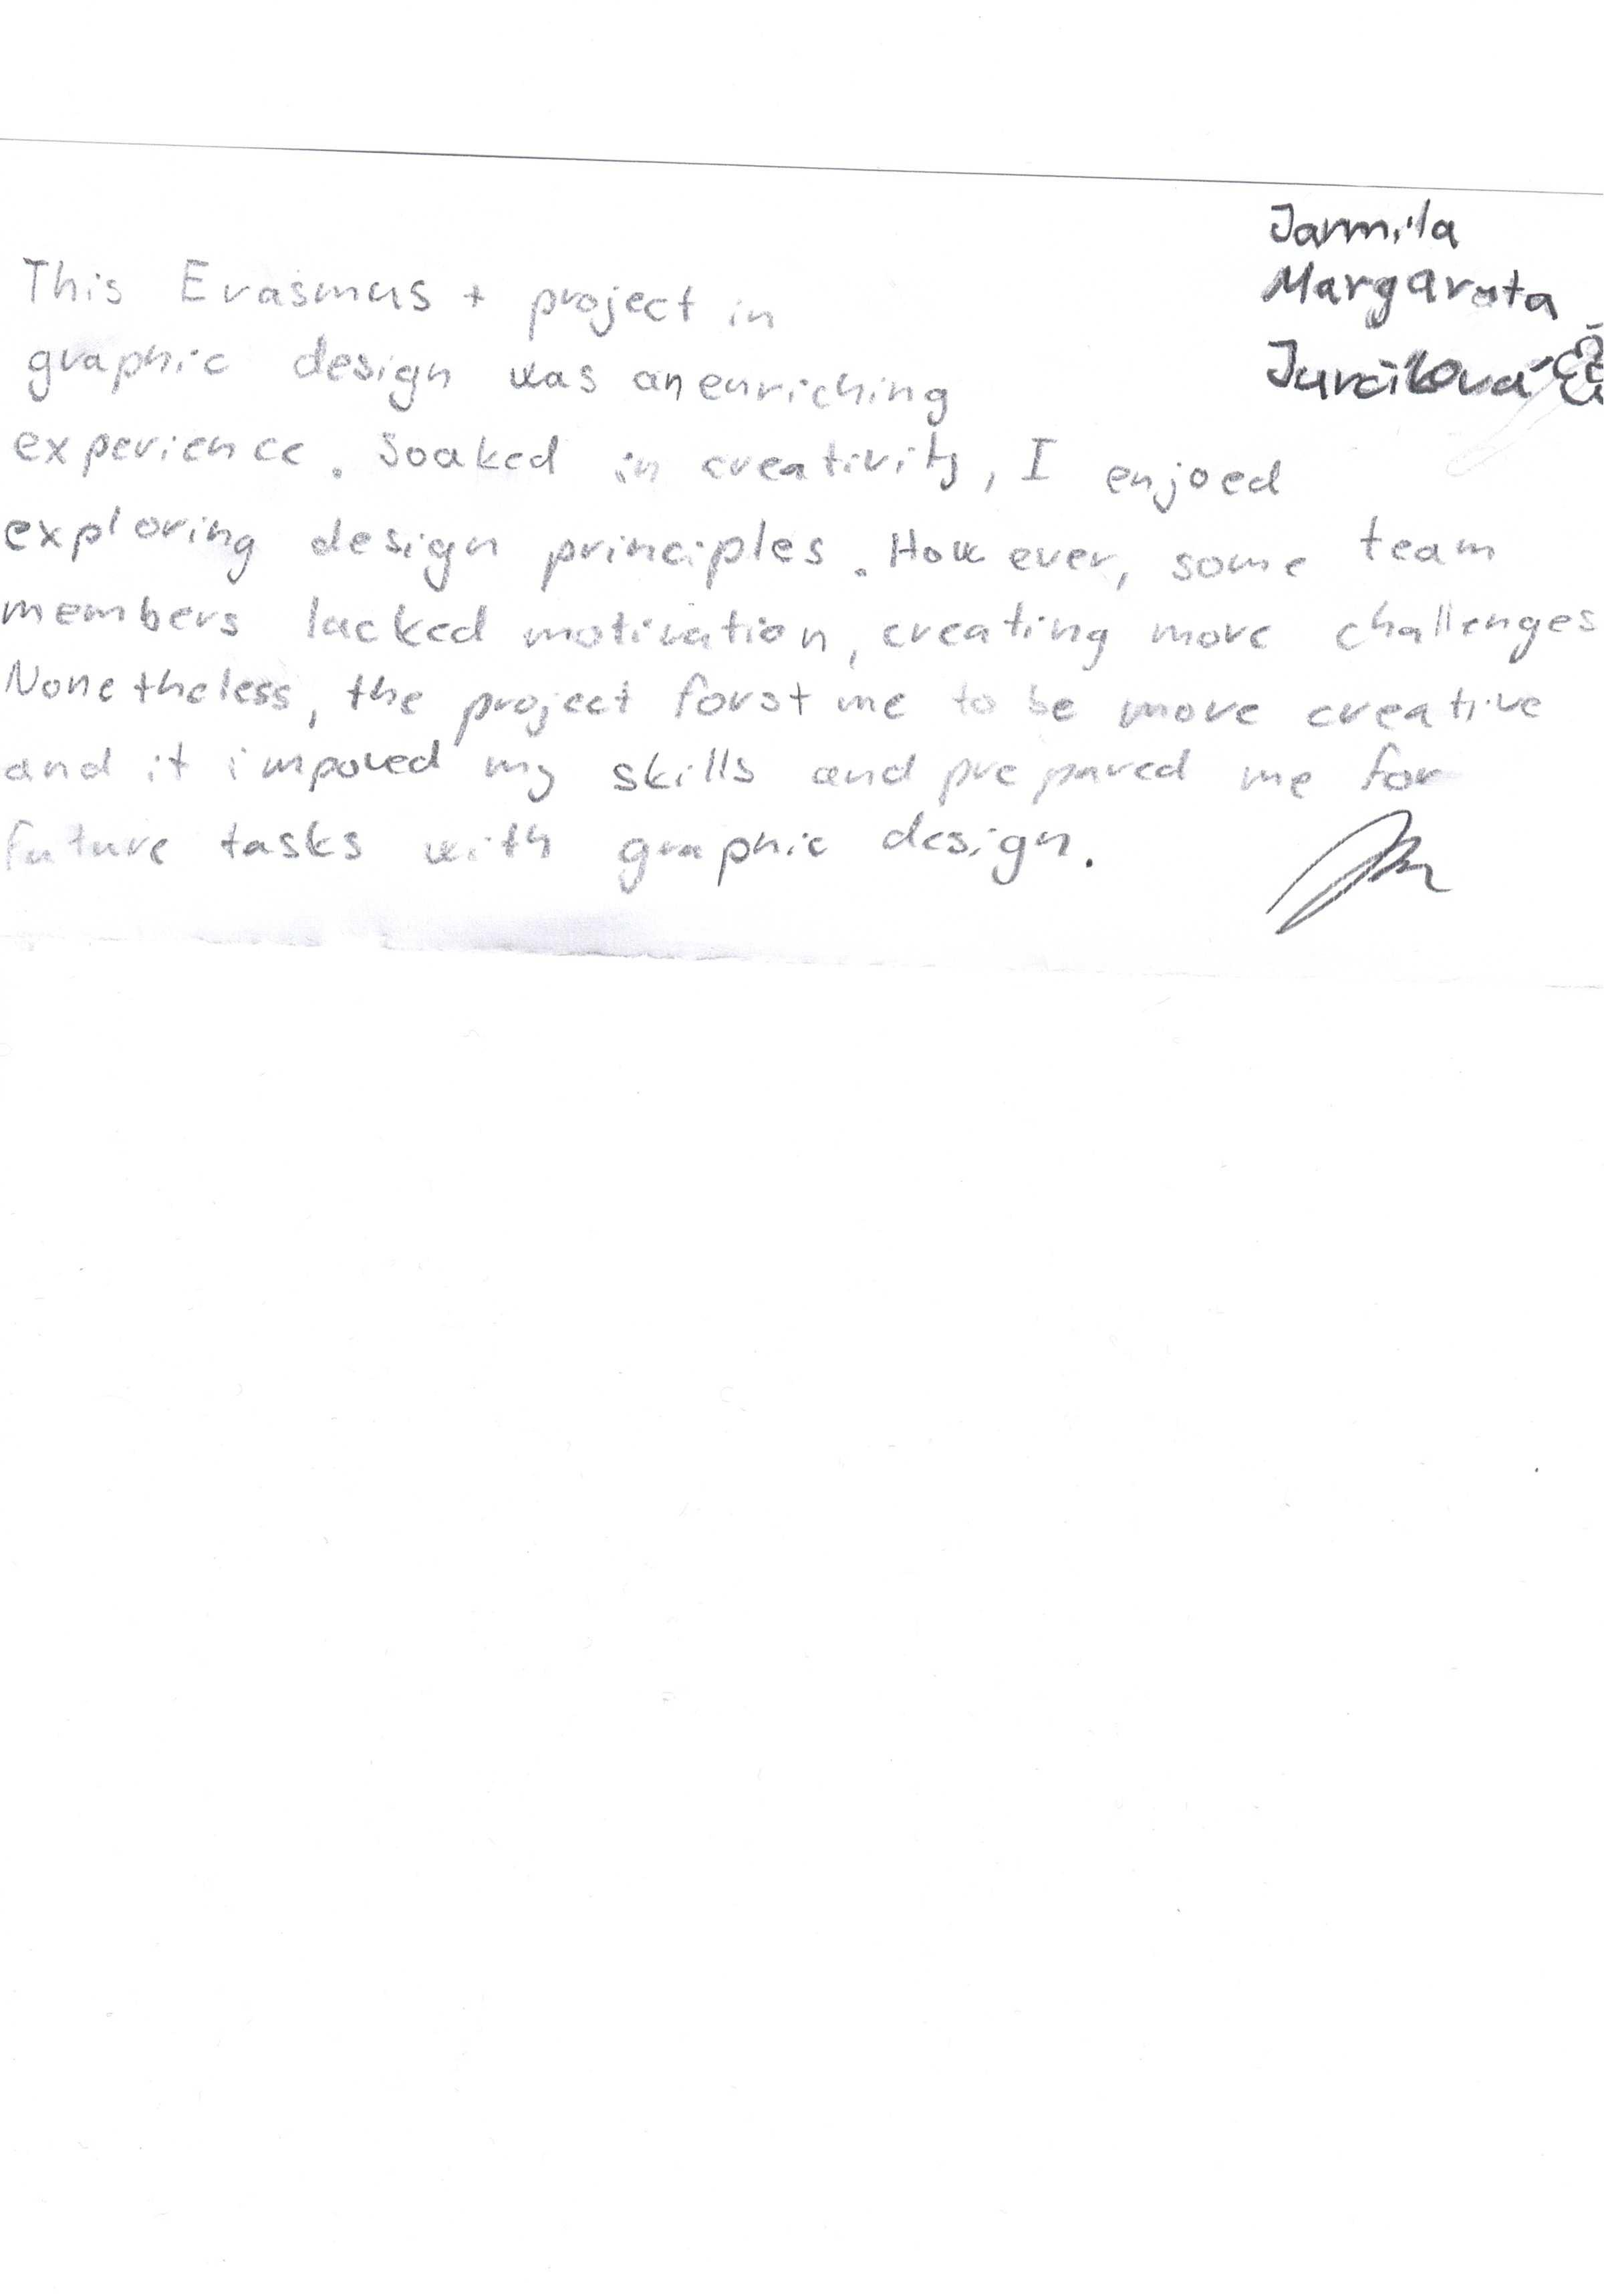 Jarmila
Margarata
Jurčíková
This Erasmus + project in
graphic design was an enriching
experience. Soaked in creativity, I enjoed
exploring design principles. However, some team
members lacked motivation, creating more challenges
Nonetheless, the project forst me to be more creative
and it impoved my skills and prepared me for
future tasks with graphic design.